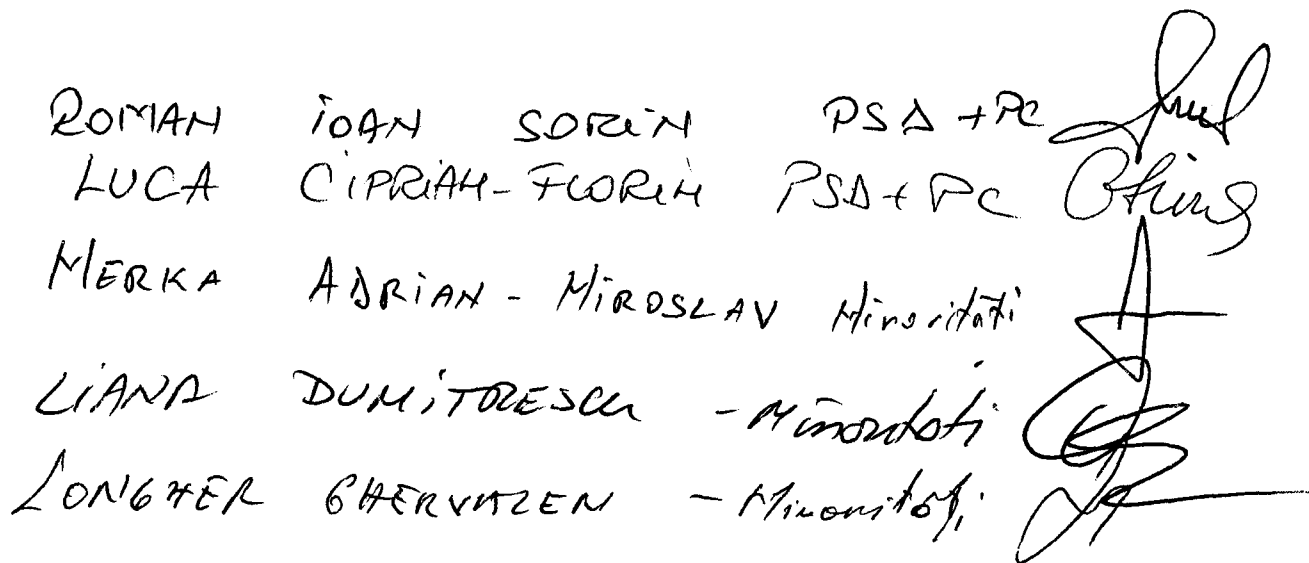 ROMAN IOAN SORIN PSD + PC
LUCA CIPRIAN-FLORIN PSD + PC
MERKA ADRIAN - MIROSLAV Minorități
LIANA DUMITRESCU - Minorități
LONGHER GHERVAZEN - Minorități